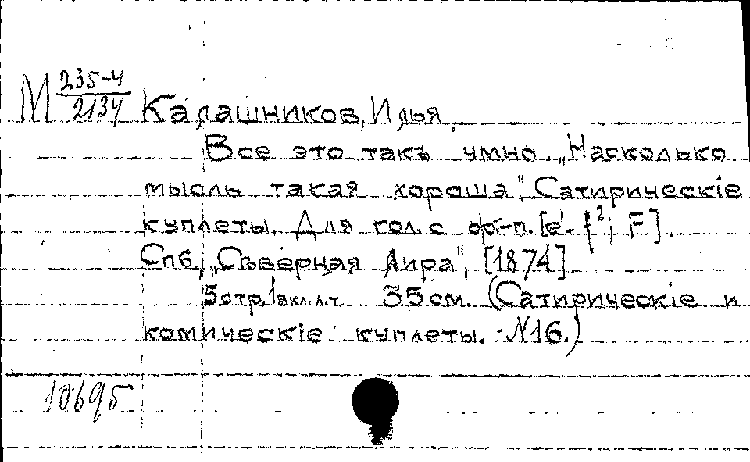 М 235-4
2134
Калашников, Илья.
Все это такъ умно. „Насколько
мысль такая хороша". Сатирическіе
куплеты. Для гол. с ф-п. [e¹-f²; F].
Спб., „Северная Лира", [1874]
5 стр. 1 вкл. л. ч. 35 см. (Сатирическіе и
комическіе куплеты. N16.)
10695